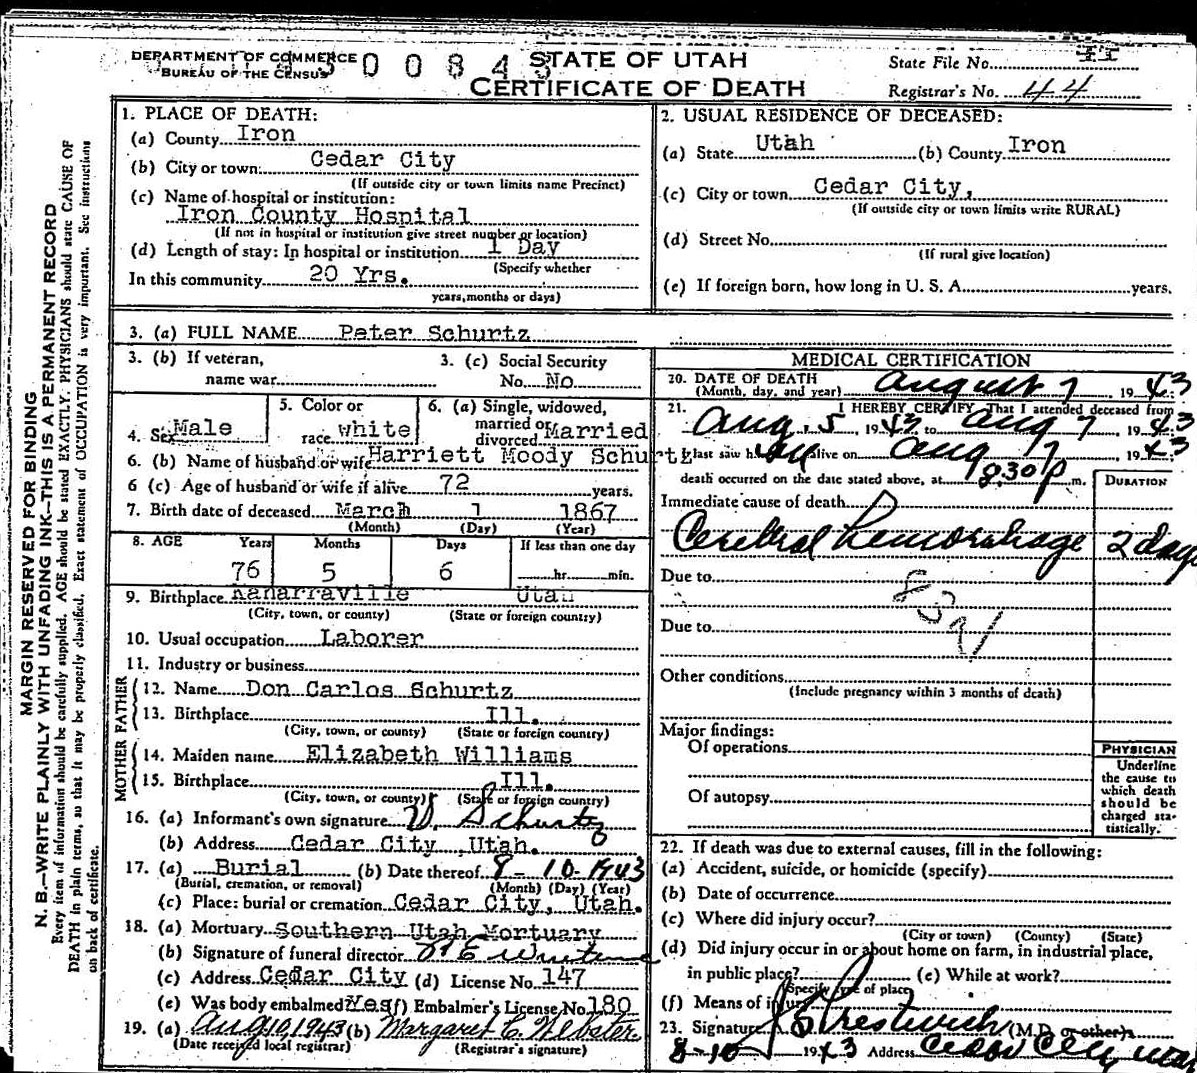 DEPARTMENT OF COMMERCE
BUREAU OF THE CENSUS
0 0 8 4 3
STATE OF UTAH
CERTIFICATE OF DEATH
State File No.
Registrar's No. 44
MARGIN RESERVED FOR BINDING
N. B.—WRITE PLAINLY WITH UNFADING INK—THIS IS A PERMANENT RECORD
Every item of information should be carefully supplied. AGE should be stated EXACTLY. PHYSICIANS should state CAUSE OF
DEATH in plain terms, so that it may be properly classified. Exact statement of OCCUPATION is very important. See instructions
on back of certificate.
1. PLACE OF DEATH:
(a) County Iron
(b) City or town: Cedar City
(If outside city or town limits name Precinct)
(c) Name of hospital or institution:
Iron County Hospital
(If not in hospital or institution give street number or location)
(d) Length of stay: In hospital or institution 1 Day
(Specify whether
In this community 20 Yrs.
years, months or days)
2. USUAL RESIDENCE OF DECEASED:
(a) State Utah (b) County Iron
(c) City or town Cedar City,
(If outside city or town limits write RURAL)
(d) Street No.
(If rural give location)
(e) If foreign born, how long in U. S. A. years.
3. (a) FULL NAME Peter Schurtz
3. (b) If veteran,
name war
3. (c) Social Security
No. No
4. Sex Male
5. Color or
race white
6. (a) Single, widowed,
married or
divorced Married
6. (b) Name of husband or wife Harriett Moody Schurtz
6 (c) Age of husband or wife if alive 72 years.
7. Birth date of deceased March 1 1867
(Month) (Day) (Year)
8. AGE Years Months Days If less than one day
76 5 6 hr. min.
9. Birthplace Kanarraville Utah
(City, town, or county) (State or foreign country)
10. Usual occupation Laborer
11. Industry or business
FATHER
12. Name Don Carlos Schurtz
13. Birthplace Ill.
(City, town, or county) (State or foreign country)
MOTHER
14. Maiden name Elizabeth Williams
15. Birthplace Ill.
(City, town, or county) (State or foreign country)
16. (a) Informant's own signature Schurtz
(b) Address Cedar City, Utah.
17. (a) Burial (b) Date thereof 8-10-1943
(Burial, cremation, or removal) (Month) (Day) (Year)
(c) Place: burial or cremation Cedar City, Utah.
18. (a) Mortuary Southern Utah Mortuary
(b) Signature of funeral director
(c) Address Cedar City (d) License No. 147
(e) Was body embalmed Yes (f) Embalmer's License No. 180
19. (a) Aug 10, 1943 (b) Margaret C. Webster
(Date received local registrar) (Registrar's signature)
MEDICAL CERTIFICATION
20. DATE OF DEATH
(Month, day, and year) August 7, 1943
21. I HEREBY CERTIFY That I attended deceased from
Aug. 5, 1943 to Aug 7, 1943
I last saw him alive on Aug 7, 1943
death occurred on the date stated above, at 8:30 p m.
DURATION
Immediate cause of death
Cerebral hemorrhage 2 days
Due to
Due to
Other conditions
(Include pregnancy within 3 months of death)
Major findings:
Of operations
Of autopsy
PHYSICIAN
Underline
the cause to
which death
should be
charged sta-
tistically.
22. If death was due to external causes, fill in the following:
(a) Accident, suicide, or homicide (specify)
(b) Date of occurrence
(c) Where did injury occur?
(City or town) (County) (State)
(d) Did injury occur in or about home on farm, in industrial place,
in public place? (e) While at work?
(Specify type of place)
(f) Means of injury
23. Signature Prestwich (M.D. or other)
8-10 1943 Address Cedar City Utah